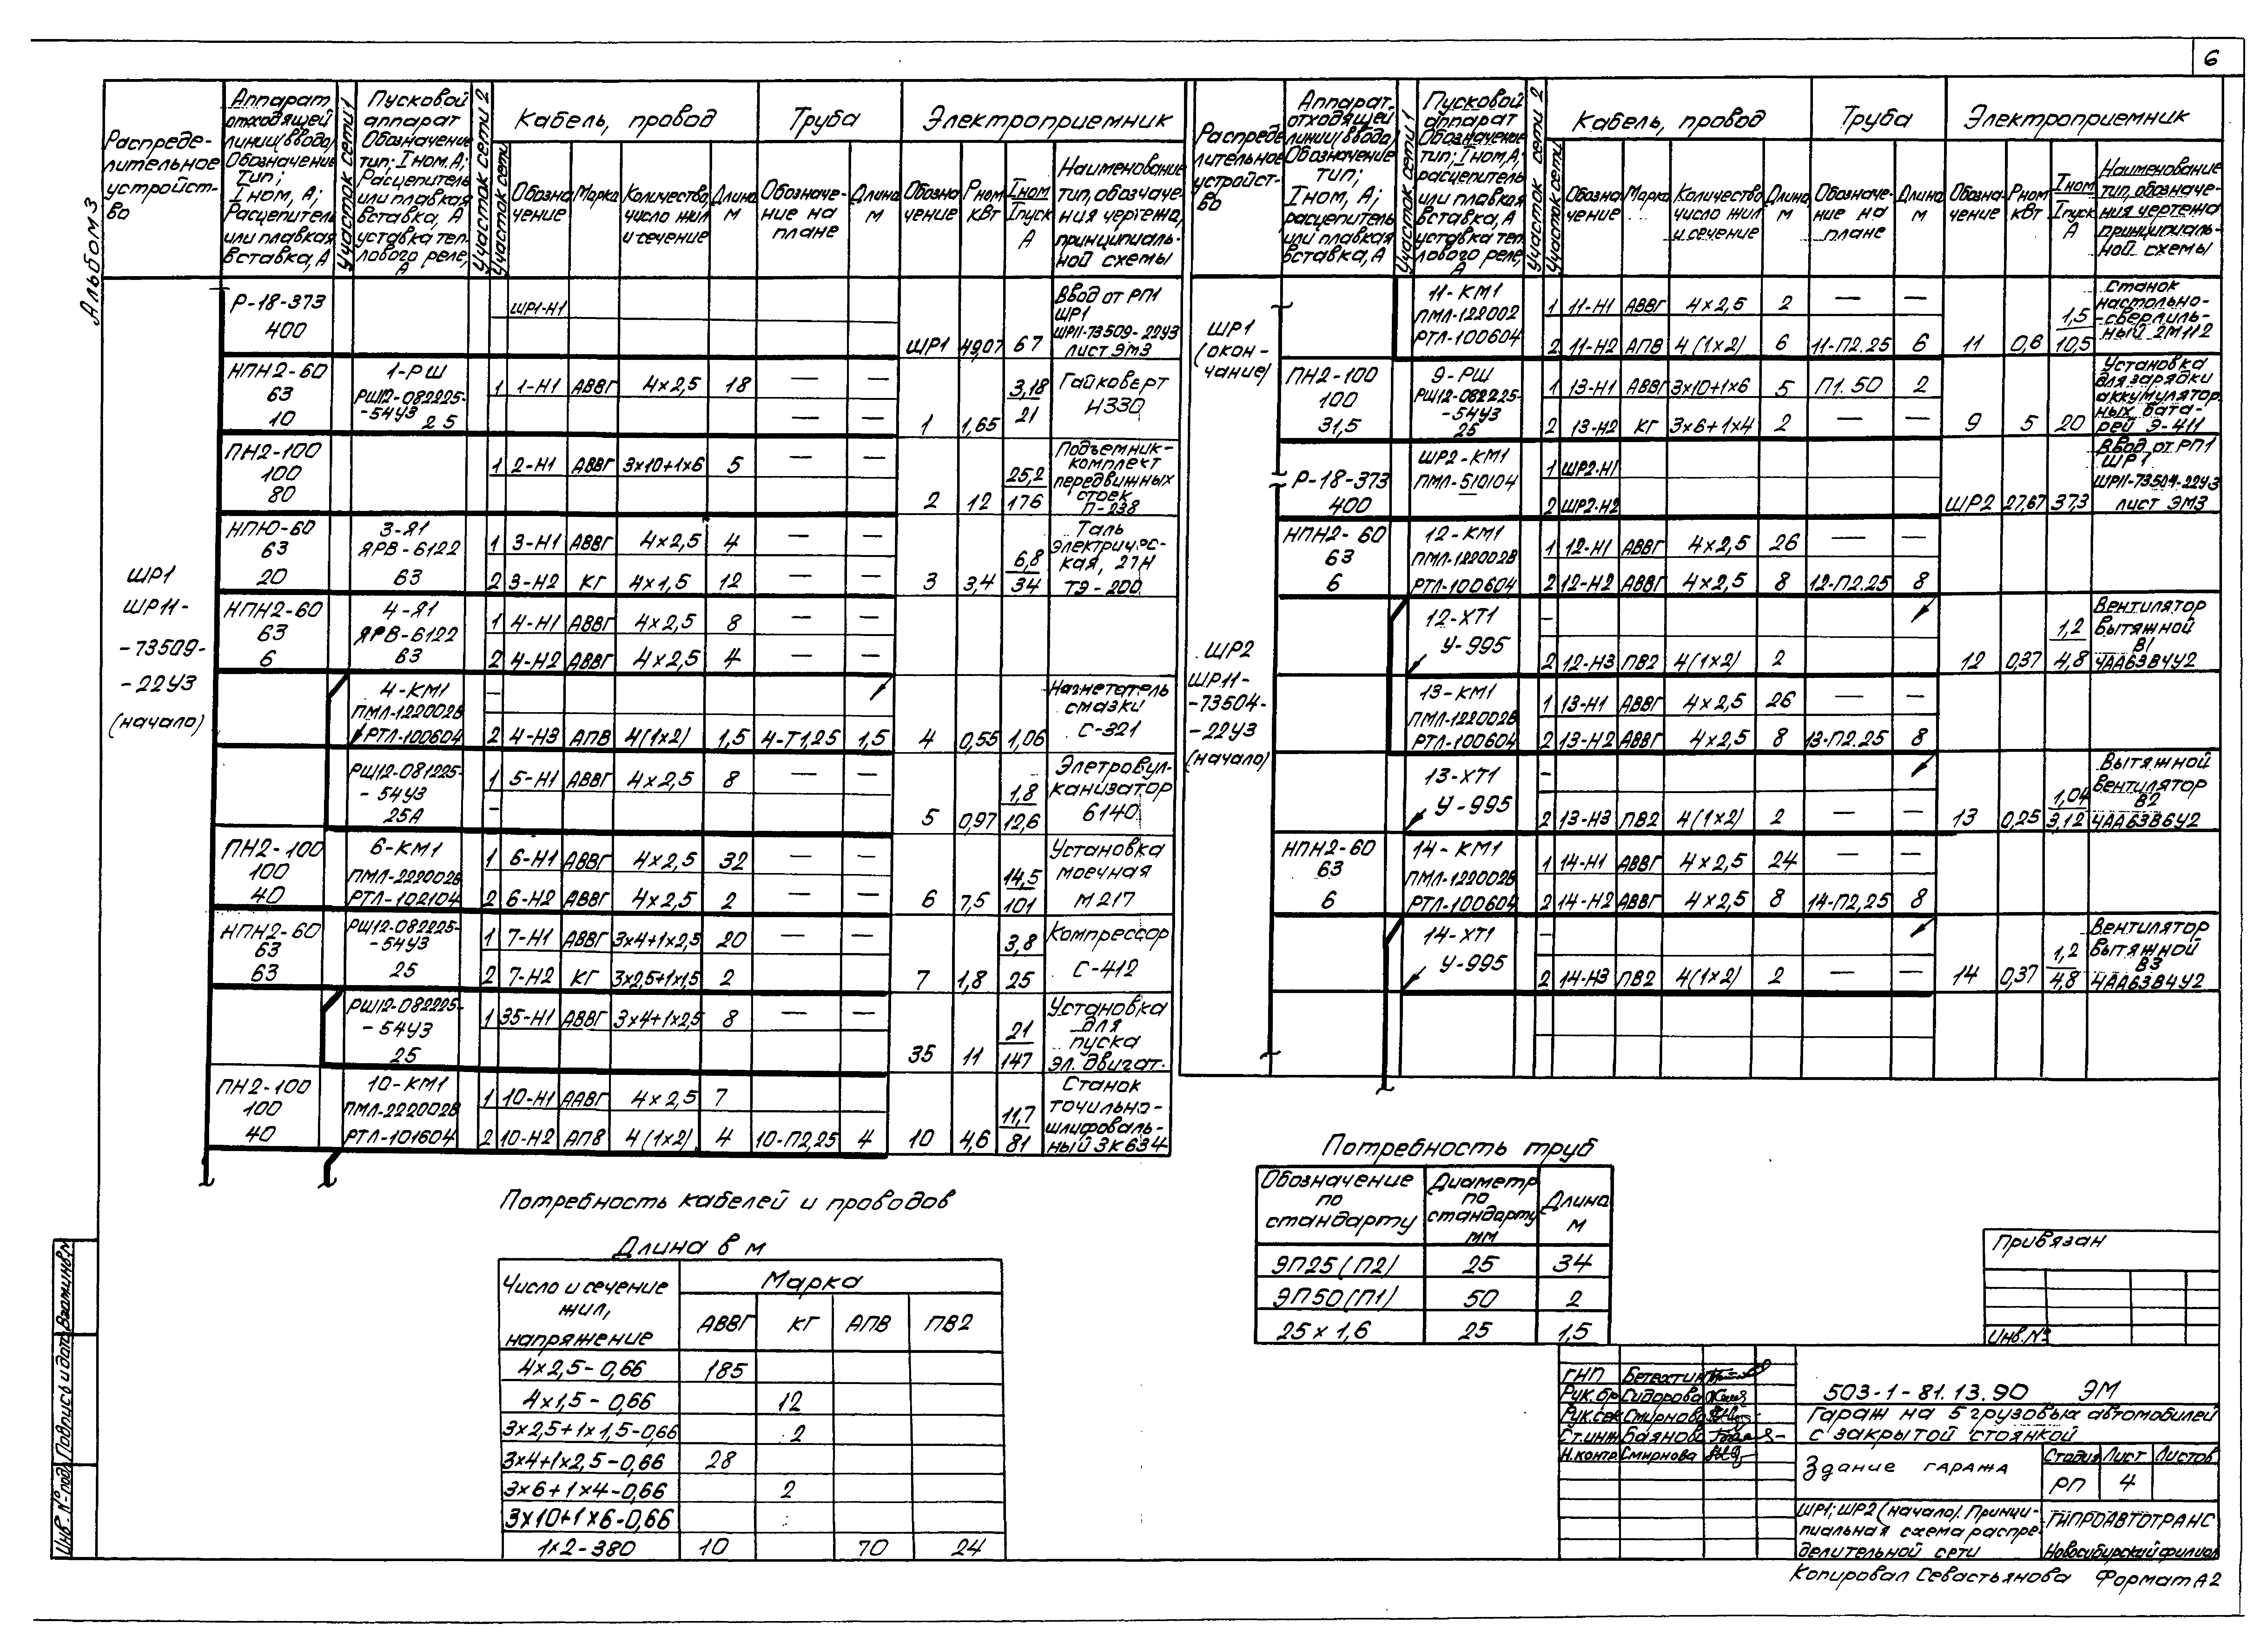 6
Альбом 3
Распреде-
лительное
устройст-
во
Аппарат
отходящей
линии (ввода)
Обозначение
Тип;
Iном, А;
Расцепитель
или плавкая
вставка, А
Участок сети 1
Пусковой
аппарат
Обозначение
тип; Iном, А;
Расцепитель
или плавкая
вставка, А
уставка теп-
лового реле,
А
Участок сети 2
Кабель, провод
Участок сети
Обозна
чение
Марка
Количество,
число жил
и сечение
Длина
м
Труба
Обозначе-
ние на
плане
Длина
м
Электроприемник
Обозна
чение
Рном
кВт
Iном
Iпуск
А
Наименование
тип, обозначе-
ния чертежа,
принципиаль-
ной схемы
ШР1
ШР11-
-73509-
-22У3
(начало)
Р-18-373
400
ШР1-Н1
ШР1 49,07 67
Ввод от РП1
ШР1
ШР11-73509-22У3
лист ЭМ3
НПН2-60
63
10
1-РШ
РШ12-082225-
-54У3
25
1 1-Н1 АВВГ 4×2,5 18 — —
— —
1 1,65 3,18
21
Гайковерт
И330
ПН2-100
100
80
1 2-Н1 АВВГ 3×10+1×6 5 — —
2 12 25,2
176
Подъемник-
комплект
передвижных
стоек
П-238
НПЮ-60
63
20
3-Я1
ЯРВ-6122
63
1 3-Н1 АВВГ 4×2,5 4 — —
2 3-Н2 КГ 4×1,5 12 — —
3 3,4 6,8
34
Таль
электричес-
кая, 27Н
ТЭ-200
НПН2-60
63
6
4-Я1
ЯРВ-6122
63
1 4-Н1 АВВГ 4×2,5 8 — —
2 4-Н2 АВВГ 4×2,5 4 — —
4-КМ1
ПМЛ-122002В
РТЛ-100604
—
2 4-Н3 АПВ 4(1×2) 1,5 4-Т1,25 1,5
4 0,55 1,06
Нагнетатель
смазки
С-321
РШ12-081225-
-54У3
25А
1 5-Н1 АВВГ 4×2,5 8 — —
—
5 0,97 1,8
12,6
Элетровул-
канизатор
6140
ПН2-100
100
40
6-КМ1
ПМЛ-222002В
РТЛ-102104
1 6-Н1 АВВГ 4×2,5 32 — —
2 6-Н2 АВВГ 4×2,5 2 — —
6 7,5 14,5
101
Установка
моечная
М217
НПН2-60
63
63
РШ12-082225-
-54У3
25
1 7-Н1 АВВГ 3×4+1×2,5 20 — —
2 7-Н2 КГ 3×2,5+1×1,5 2 — —
7 1,8 3,8
25
Компрессор
С-412
РШ12-082225-
-54У3
25
1 35-Н1 АВВГ 3×4+1×2,5 8 — —
35 11 21
147
Установка
для
пуска
эл. двигат.
ПН2-100
100
40
10-КМ1
ПМЛ-222002В
РТЛ-101604
1 10-Н1 ААВГ 4×2,5 7
2 10-Н2 АПВ 4(1×2) 4 10-П2,25 4
10 4,6 11,7
81
Станок
точильно-
шлифоваль-
ный 3К634
Распреде
лительное
устройст-
во
Аппарат.
отходящей
линии (ввода)
Обозначение
тип;
Iном, А;
расцепитель
или плавкая
вставка, А
Участок сети 1
Пусковой
аппарат
Обозначение
тип; Iном, А;
расцепитель
или плавкая
вставка, А
уставка теп
лового реле,
А
Участок сети 2
Кабель, провод
Участок сети
Обозна
чение
Марка
Количество
число жил
и сечение
Длина
м
Труба
Обозначе-
ние на
плане
Длина
м
Электроприемник
Обозна-
чение
Рном
кВт
Iном
Iпуск
А
Наименование
тип, обозначе-
ния чертежа
принципиаль-
ной схемы
ШР1
(окон-
чание)
11-КМ1
ПМЛ-122002
РТЛ-100604
1 11-Н1 АВВГ 4×2,5 2 — —
2 11-Н2 АПВ 4(1×2) 6 11-П2.25 6
11 0,6 1,5
10,5
Станок
настольно-
-сверлиль-
ный 2М112
ПН2-100
100
31,5
9-РШ
РШ12-082225-
-54У3
25
1 13-Н1 АВВГ 3×10+1×6 5 П1.50 2
2 13-Н2 КГ 3×6+1×4 2 — —
9 5 20
Установка
для зарядки
аккумулятор
ных бата-
рей Э-411
ШР2
ШР11-
-73504-
-22У3
(начало)
Р-18-373
400
ШР2-КМ1
ПМЛ-510104
1 ШР2-Н1
2 ШР2-Н2
ШР2 27,67 37,3
Ввод от РП1
ШР1
ШР11-73504-22У3
лист ЭМ3
НПН2-60
63
6
12-КМ1
ПМЛ-122002В
РТЛ-100604
1 12-Н1 АВВГ 4×2,5 26 — —
2 12-Н2 АВВГ 4×2,5 8 12-П2.25 8
12-ХТ1
У-995
—
2 12-Н3 ПВ2 4(1×2) 2
12 0,37 1,2
4,8
Вентилятор
вытяжной
В1
4АА63В4У2
13-КМ1
ПМЛ-122002В
РТЛ-100604
1 13-Н1 АВВГ 4×2,5 26 — —
2 13-Н2 АВВГ 4×2,5 8 13-П2.25 8
13-ХТ1
У-995
—
2 13-Н3 ПВ2 4(1×2) 2 — —
13 0,25 1,04
3,12
Вытяжной
вентилятор
В2
4АА63В6У2
НПН2-60
63
6
14-КМ1
ПМЛ-122002В
РТЛ-100604
1 14-Н1 АВВГ 4×2,5 24 — —
2 14-Н2 АВВГ 4×2,5 8 14-П2,25 8
14-ХТ1
У-995
—
2 14-Н3 ПВ2 4(1×2) 2 — —
14 0,37 1,2
4,8
Вентилятор
вытяжной
В3
4АА63В4У2
Потребность кабелей и проводов
Длина в м
Число и сечение
жил,
напряжение
Марка
АВВГ КГ АПВ ПВ2
4×2,5-0,66 185
4×1,5-0,66 12
3×2,5+1×1,5-0,66 2
3×4+1×2,5-0,66 28
3×6+1×4-0,66 2
3×10+1×6-0,66
1×2-380 10 70 24
Потребность труб
Обозначение
по
стандарту
Диаметр
по
стандарту
мм
Длина
м
ЭП25(П2) 25 34
ЭП50(П1) 50 2
25×1,6 25 1,5
Привязан
Инв.№
ГИП Бетехтин
Рук.бр Сидорова
Рук.сек Смирнова
Ст.инж Баянова
Н.контр. Смирнова
503-1-81.13.90 ЭМ
Гараж на 5 грузовых автомобилей
с закрытой стоянкой
Здание гаража
Стадия Лист Листов
РП 4
ШР1; ШР2 (начало). Принци-
пиальная схема распре-
делительной сети
ГИПРОАВТОТРАНС
Новосибирский филиал
Копировал Севастьянова Формат А2
Инв.№ подл
Подпись и дата
Взам.инв.№